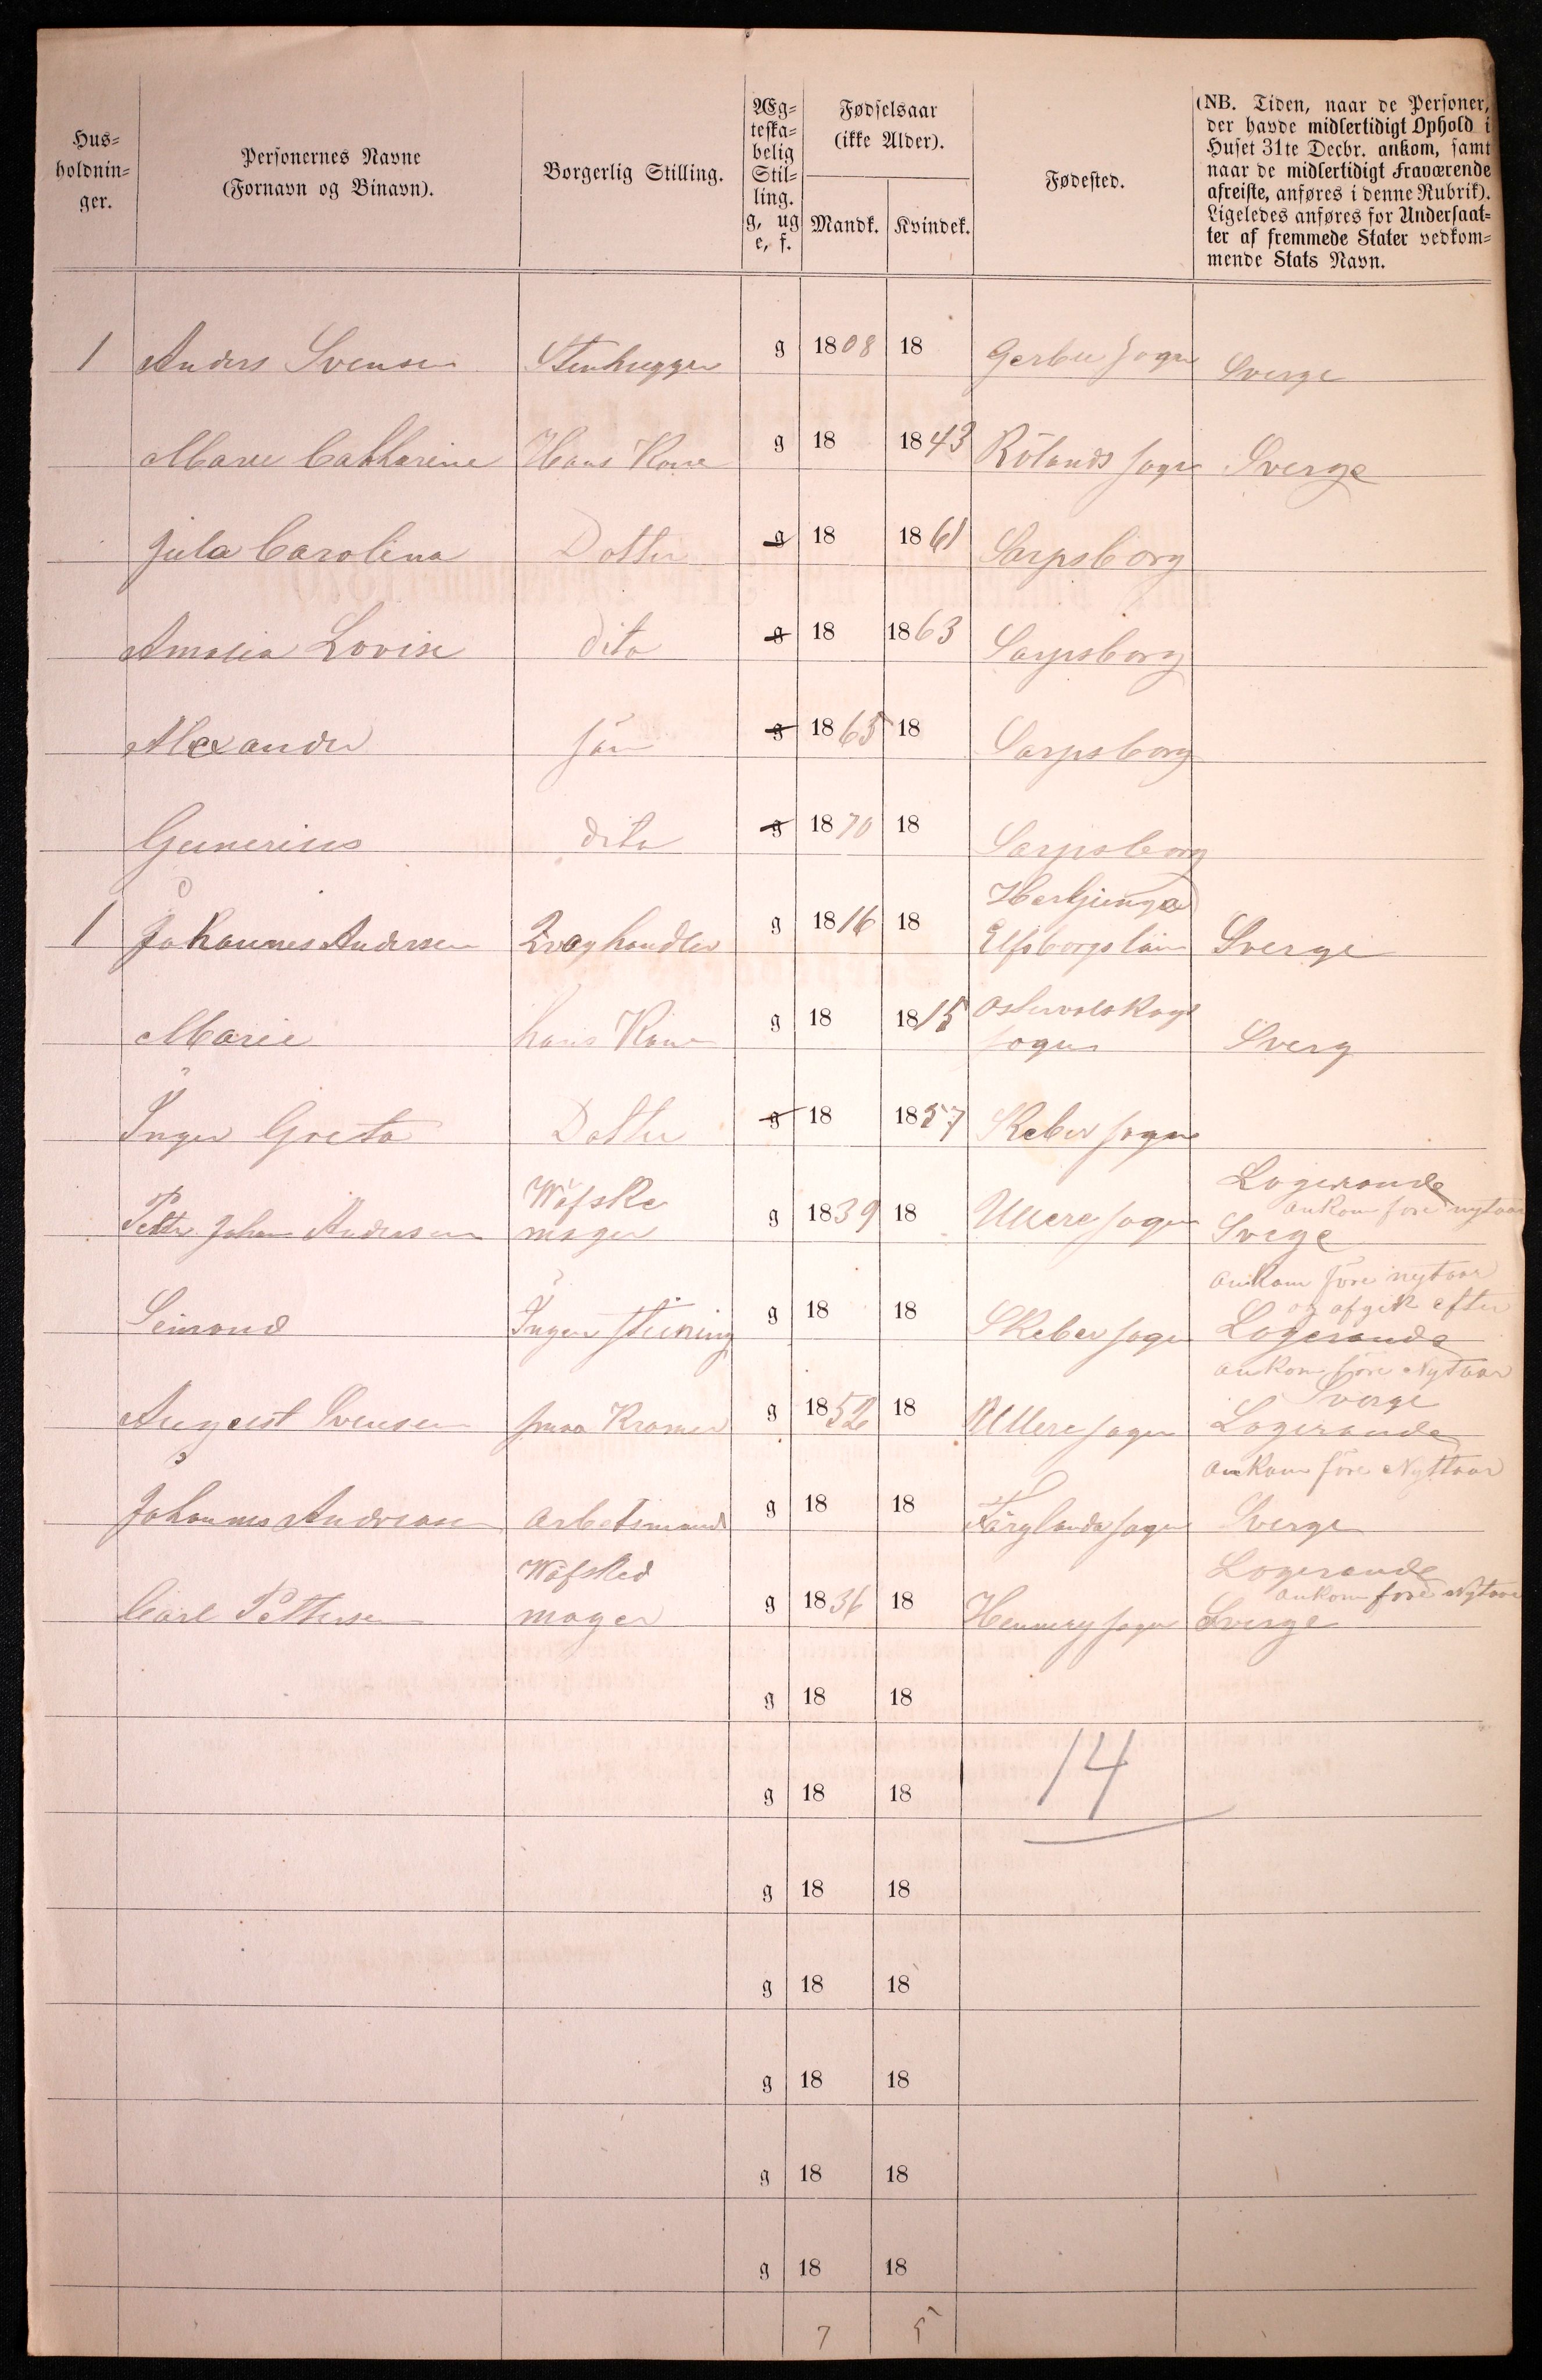 Hus-
holdnin-
ger.
Personernes Navne
(Fornavn og Binavn).
Borgerlig Stilling.
Æg-
teska-
belig
Stil-
ling.
g, ug
e, f.
Fødselsaar
(ikke Alder).
Mandk. Kvindek.
Fødested.
(NB. Tiden, naar de Personer,
der havde midlertidigt Ophold i
Huset 31te Decbr. ankom, samt
naar de midlertidigt Fraværende
afreiste, anføres i denne Rubrik).
Ligeledes anføres for Undersaat-
ter af fremmede Stater vedkom-
mende Stats Navn.
1 Anders Svensen Stenhugger g 1808 18 Gerbu sogn Sverge
Marie Catharine Hans Kone g 18 1843 Rölands sogn Sverge
Jula Carolina Dotter g 18 1861 Sarpsborg
Amalia Lovise dito g 18 1863 Sarpsborg
Alexander sön g 1865 18 Sarpsborg
Gunerius dito g 1870 18 Sarpsborg
1 Johannes Andersen g 1816 18 Herljunga
Elfsborgs län Sverge
Marie hans Kone g 18 1815
sogn Sverg
Inger Greta Dotter g 18 1857 Skeber sogn
Petter Johan Andersen Wäfske
mager g 1839 18 Ullere sogn Logerande
ankom före nytaar
Svege
Simond Ingen stering g 18 18 Skeber sogn ankom före nytaar
og afgik efter
Logerande
August Svensen smaa Kramer g 1852 18 Ullere sogn ankom före Nytaar
Sverge
Logerande
Johannes Andreasen Arbetsmand g 18 18 Färglanda sogn ankom före Nyttaar
Sverge
Carl Pettersen Wäfsked
mager g 1836 18 sogn Logerande
ankom före Nytaar
Sverge
g 18 18
g 18 18 14
g 18 18
g 18 18
g 18 18
g 18 18
g 18 18
7 5